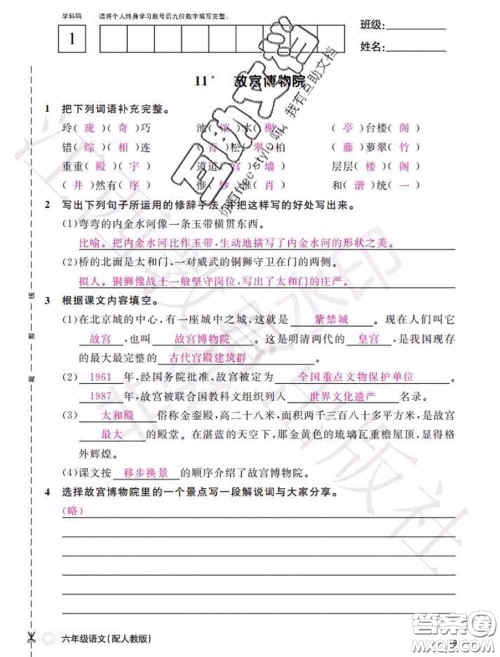 学科码 请将个人终身学习账号后九位数字填写完整。
1
班级:
姓名:
11* 故宫博物院
1 把下列词语补充完整。
玲(珑)(奇)巧 (亭)台楼(阁)
错(综)(相)连 松(翠)柏 (藤)萝翠(竹)
重重(殿)(宇) 道道 层层(楼)(阁)
(井)然有(序) 惟(妙)惟(肖) 和(谐)统(一)
2 写出下列句子所运用的修辞手法,并把这样写的好处写出来。
(1)弯弯的内金水河像一条玉带横贯东西。
比喻。把内金水河比作玉带,生动地描写了内金水河的形状之美。
(2)桥的北面是太和门,一对威武的铜狮守卫在门的两侧。
拟人。铜狮像战士一般坚守岗位,写出了太和门的庄严。
3 根据课文内容填空。
(1)在北京城的中心,有一座城中之城,这就是 紫禁城 。现在人们叫它
故宫 ,也叫 故宫博物院 。这是明清两代的 皇宫 ,是我国现存
的最大最完整的 古代宫殿建筑群 。
(2) 1961 年,经国务院批准,故宫被定为 全国重点文物保护单位 。
1987 年,故宫被联合国教科文组织列入 世界文化遗产 名录。
(3) 太和殿 俗称金銮殿,高二十八米,面积两千三百八十多平方米,是故宫
最大 的殿堂。在湛蓝的天空下,那金黄色的琉璃瓦重檐屋顶,显得格
外辉煌。
(4)课文按 移步换景 的顺序介绍了故宫博物院。
4 选择故宫博物院里的一个景点写一段解说词与大家分享。
(略)
六年级语文(配人教版)